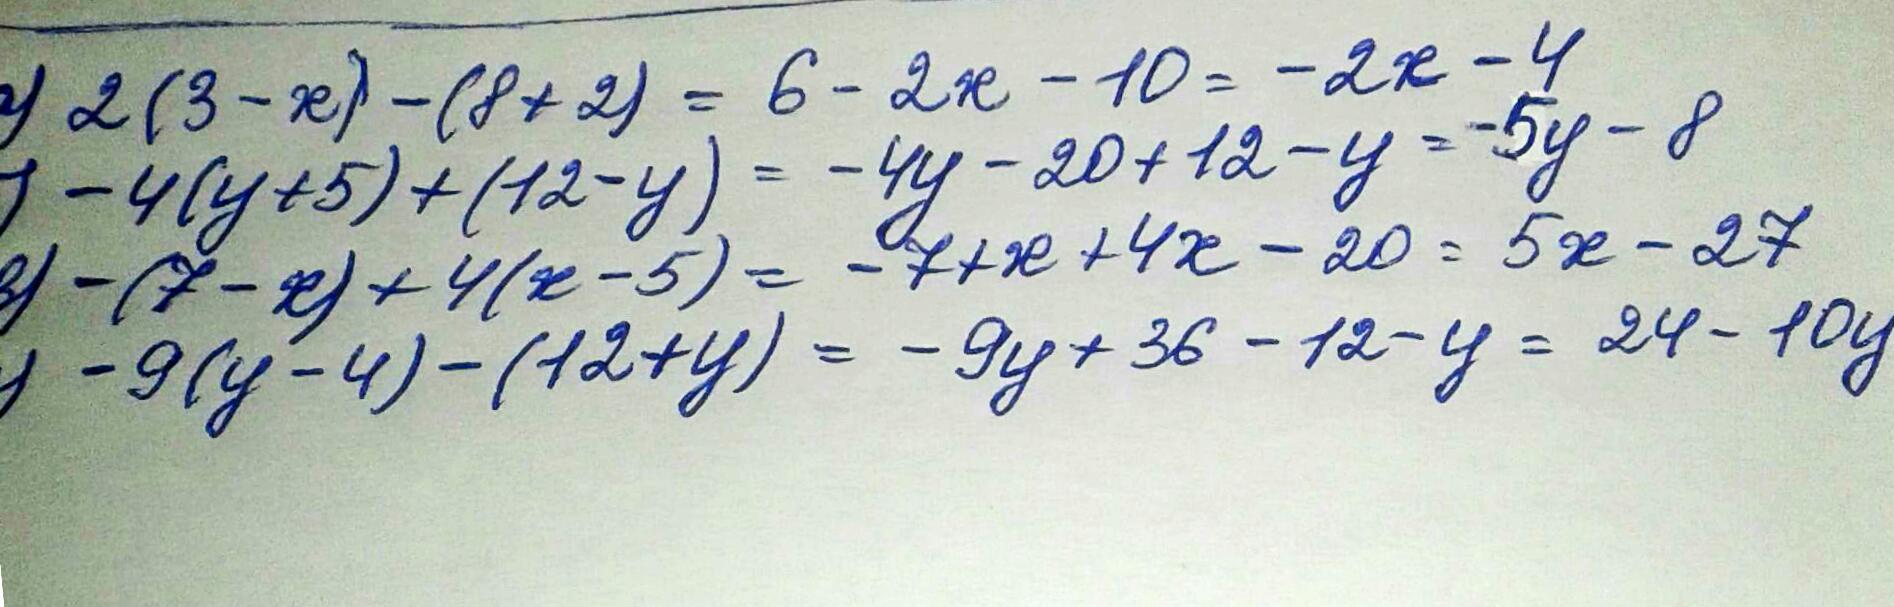 а) 2(3-x)-(8+2) = 6-2x-10 = -2x-4
) -4(y+5)+(12-y) = -4y-20+12-y = -5y-8
в) -(7-x)+4(x-5) = -7+x+4x-20 = 5x-27
) -9(y-4)-(12+y) = -9y+36-12-y = 24-10y